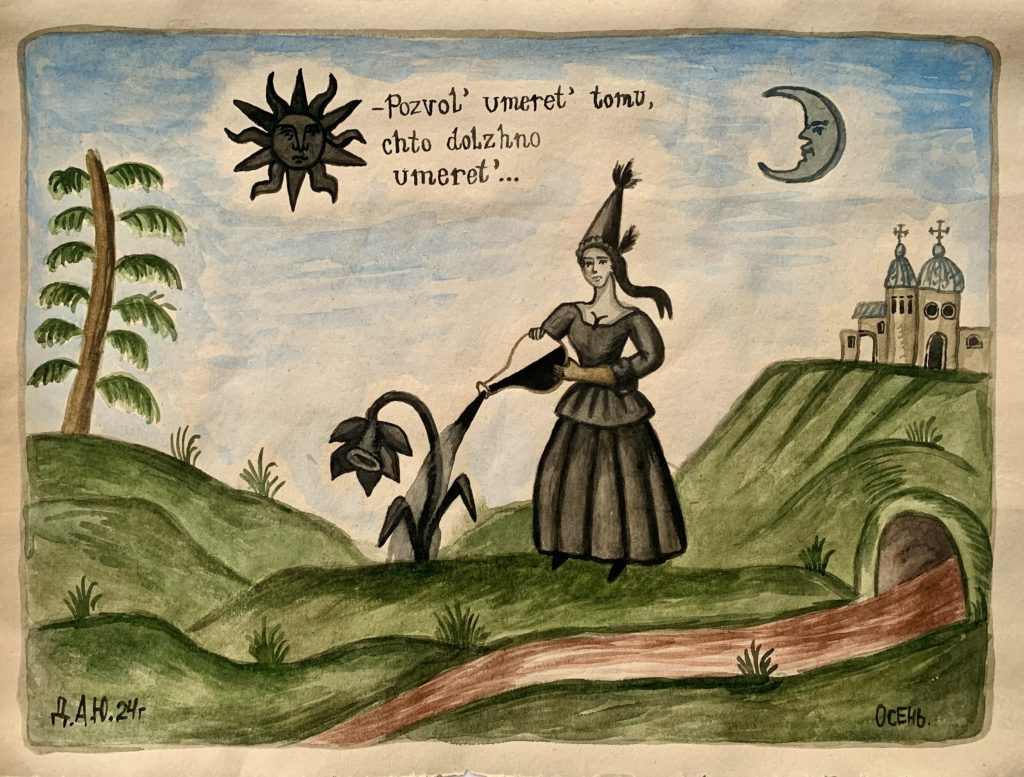 -Pozvol' umeret' tomu,
chto dolzhno
umeret'...
Д.А.Ю.24г
ОСЕНЬ.